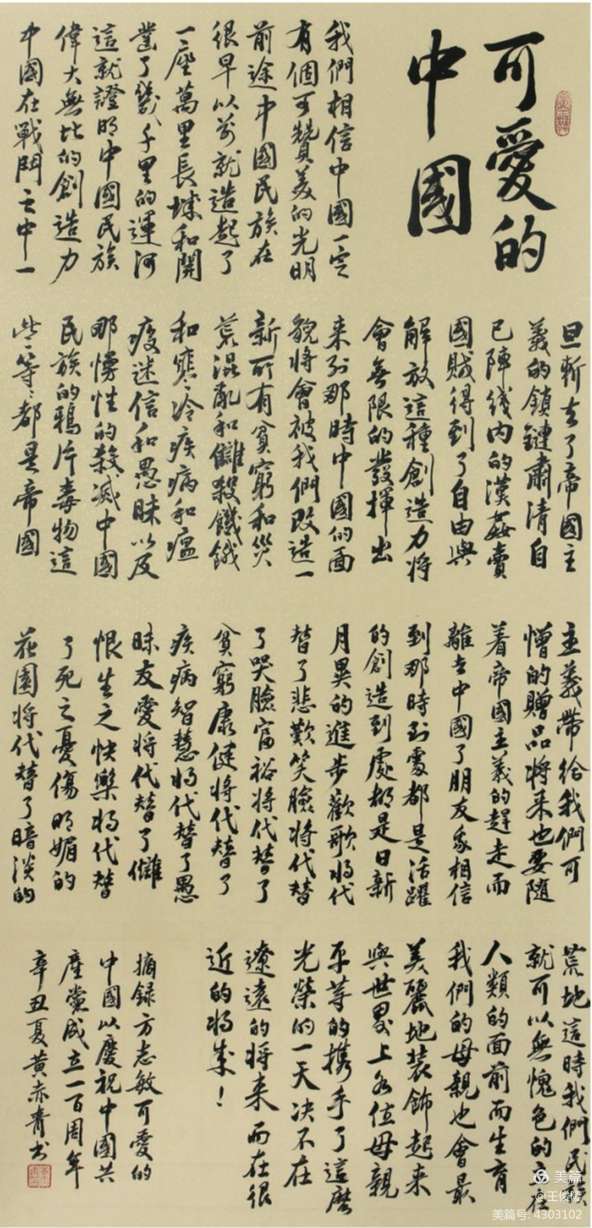 可愛的
中國
我們相信中國一定
有個可贊美的光明
前途中國民族在
很早以前就造起了
一座萬里長城和開
鑿了幾千里的運河
這就證明中國民族
偉大無比的創造力
中國在戰鬥之中一
旦斬去了帝國主
義的鎖鏈肅清自
己陣线内的漢姦賣
國賊得到了自由與
解放這種創造力將
會無限的發揮出
来到那時中國的面
貌將會被我們改造一
新所有貧窮和災
荒混亂和讎殺饑餓
和寒冷疾病和瘟
疫迷信和愚昧以及
那慢性的殺滅中國
民族的鴉片毒物這
些等等都是帝國
主義帶給我們可
憎的贈品將来也要随
着帝國主義的趕走而
離去中國了朋友我相信
到那時到處都是活躍
的創造到處都是日新
月異的進步歡歌將代
替了悲歎笑臉將代替
了哭臉富裕將代替了
貧窮康健將代替了
疾病智慧將代替了愚
昧友愛將代替了讎
恨生之快樂將代替
了死之憂傷明媚的
花園將代替了暗淡的
荒地這時我們民族
就可以無愧色的立在
人類的面前而生育
我們的母親也會最
美麗地装飾起来
與世界上各位母親
平等的携手了這麼
光榮的一天决不在
遼遠的將来而在很
近的將来！
摘録方志敏可愛的
中國以慶祝中國共
產黨成立一百周年
辛丑夏黄赤青书
美篇
美篇号: 4303102